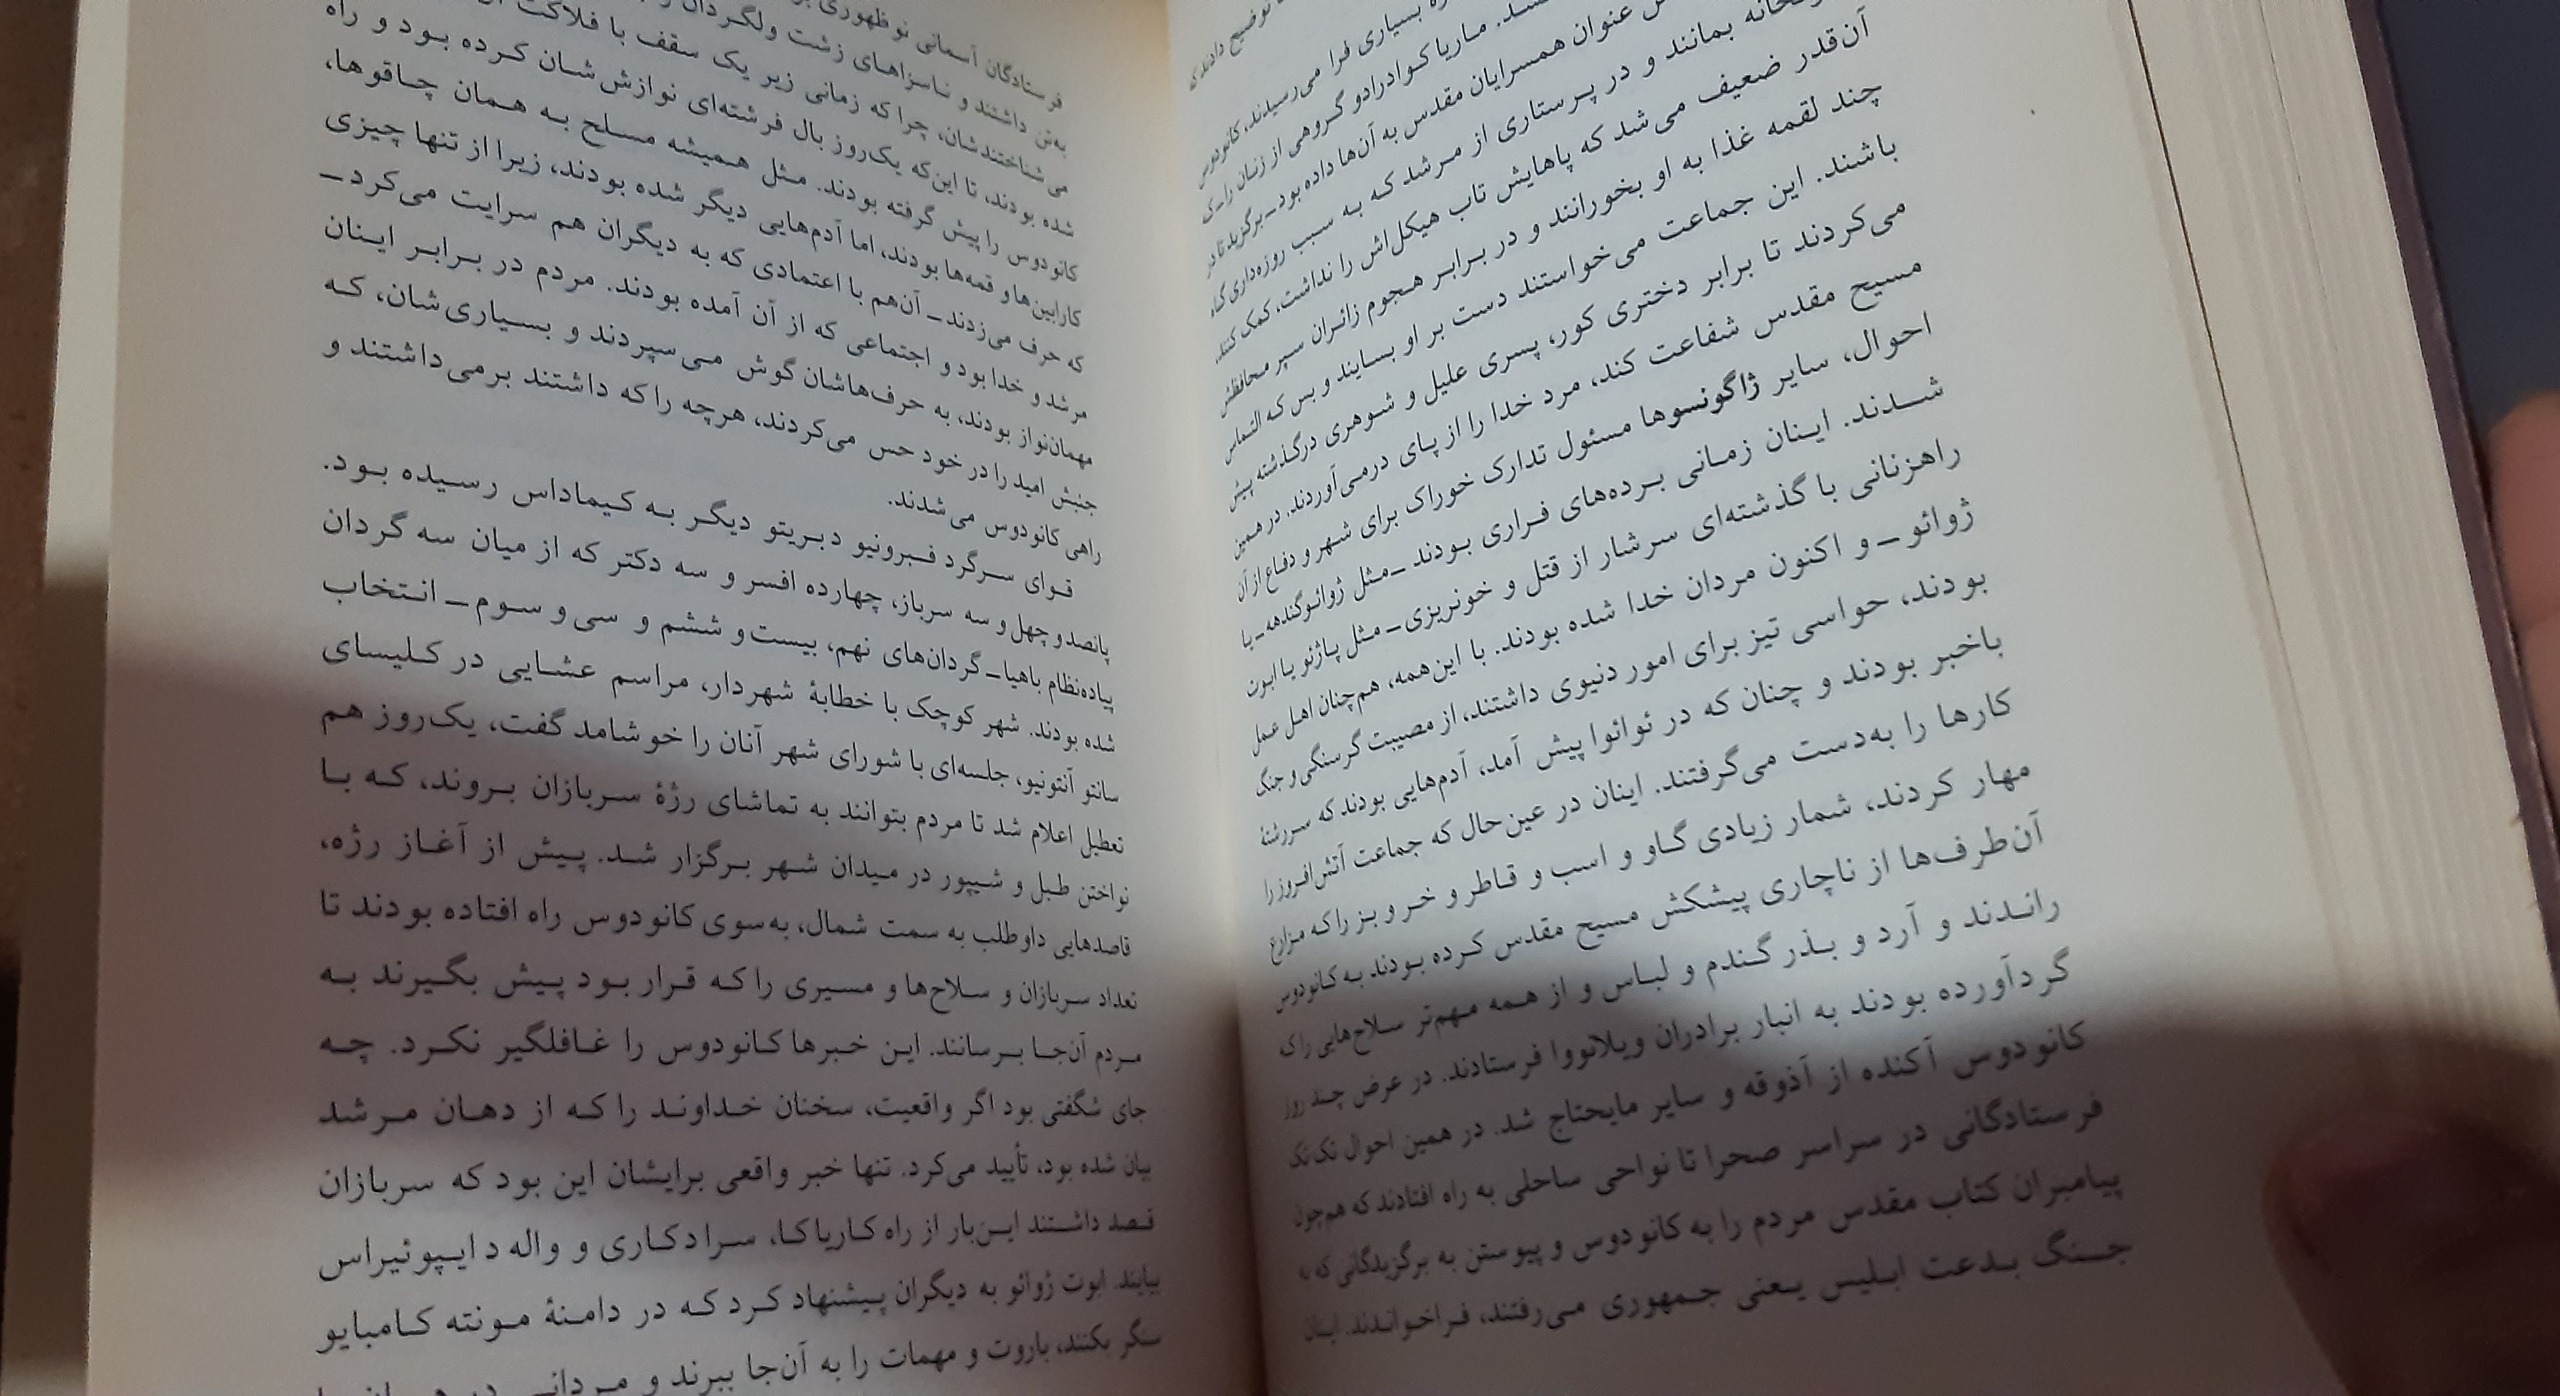 توضیح دادند که
بسیاری فرا می‌رسیدند، کانودوس
ماریا کوادرادو گروهی از زنان را ـ که
عنوان همسرایان مقدس به آن‌ها داده بود ـ برگزید تا در
بمانند و در پرستاری از مرشد که به سبب روزه‌داری گاه
آن‌قدر ضعیف می‌شد که پاهایش تاب هیکل‌اش را نداشت، کمک کنند،
چند لقمه غذا به او بخورانند و در برابر هجوم زائران سپر محافظش
باشند. این جماعت می‌خواستند دست بر او بسایند و بس که التماس
می‌کردند تا برابر دختری کور، پسری علیل و شوهری درگذشته پیش
مسیح مقدس شفاعت کند، مرد خدا را از پای درمی‌آوردند. در همین
احوال، سایر ژاگونسوها مسئول تدارک خوراک برای شهر و دفاع از آن
شدند. اینان زمانی برده‌های فراری بودند ـ مثل ژوائوگنده ـ یا
راهزنانی با گذشته‌ای سرشار از قتل و خونریزی ـ مثل پاژئو یا ابوت
ژوائو ـ و اکنون مردان خدا شده بودند. با این‌همه، هم‌چنان اهل عمل
بودند، حواسی تیز برای امور دنیوی داشتند، از مصیبت گرسنگی و جنگ
باخبر بودند و چنان که در ئوائوا پیش آمد، آدم‌هایی بودند که سررشتهٔ
کارها را به‌دست می‌گرفتند. اینان در عین‌حال که جماعت آتش‌افروز را
مهار کردند، شمار زیادی گاو و اسب و قاطر و خر و بز را که مزارع
آن‌طرف‌ها از ناچاری پیشکش مسیح مقدس کرده بودند به کانودوس
راندند و آرد و بذر گندم و لباس و از همه مهم‌تر سلاح‌هایی را که
گردآورده بودند به انبار برادران ویلانووا فرستادند. در عرض چند روز
کانودوس آکنده از آذوقه و سایر مایحتاج شد. در همین احوال تک‌تک
فرستادگانی در سراسر صحرا تا نواحی ساحلی به راه افتادند که هم‌چون
پیامبران کتاب مقدس مردم را به کانودوس و پیوستن به برگزیدگانی که به
جنگ بدعت ابلیس یعنی جمهوری می‌رفتند، فراخواندند. اینان
فرستادگان آسمانی نوظهوری
به‌تن داشتند و ناسزاهای زشت ولگردان را
می‌شناختندشان، چرا که زمانی زیر یک سقف با فلاکت
شده بودند، تا این‌که یک‌روز بال فرشته‌ای نوازش‌شان کرده بود و راه
کانودوس را پیش گرفته بودند. مثل همیشه مسلح به همان چاقوها،
کارابین‌ها و قمه‌ها بودند، اما آدم‌هایی دیگر شده بودند، زیرا از تنها چیزی
که حرف می‌زدند ـ آن‌هم با اعتمادی که به دیگران هم سرایت می‌کرد ـ
مرشد و خدا بود و اجتماعی که از آن آمده بودند. مردم در برابر اینان
مهمان‌نواز بودند، به حرف‌هاشان گوش می‌سپردند و بسیاری‌شان، که
جنبش امید را در خود حس می‌کردند، هرچه را که داشتند برمی‌داشتند و
راهی کانودوس می‌شدند.
قوای سرگرد فبرونیو دبریتو دیگر به کیماداس رسیده بود.
پانصد و چهل و سه سرباز، چهارده افسر و سه دکتر که از میان سه گردان
پیاده‌نظام باهیا ـ گردان‌های نهم، بیست و ششم و سی و سوم ـ انتخاب
شده بودند. شهر کوچک با خطابهٔ شهردار، مراسم عشایی در کلیسای
سانتو آنتونیو، جلسه‌ای با شورای شهر آنان را خوشامد گفت، یک‌روز هم
تعطیل اعلام شد تا مردم بتوانند به تماشای رژهٔ سربازان بروند، که با
نواختن طبل و شیپور در میدان شهر برگزار شد. پیش از آغاز رژه،
قاصدهایی داوطلب به سمت شمال، به‌سوی کانودوس راه افتاده بودند تا
تعداد سربازان و سلاح‌ها و مسیری را که قرار بود پیش بگیرند به
مردم آن‌جا برسانند. این خبرها کانودوس را غافلگیر نکرد. چه
جای شگفتی بود اگر واقعیت، سخنان خداوند را که از دهان مرشد
بیان شده بود، تأیید می‌کرد. تنها خبر واقعی برایشان این بود که سربازان
قصد داشتند این‌بار از راه کاریاکا، سرادکاری و واله دایپوئیراس
بیایند. ابوت ژوائو به دیگران پیشنهاد کرد که در دامنهٔ مونته کامبایو
سنگر بکنند، باروت و مهمات را به آن‌جا ببرند و مردانی